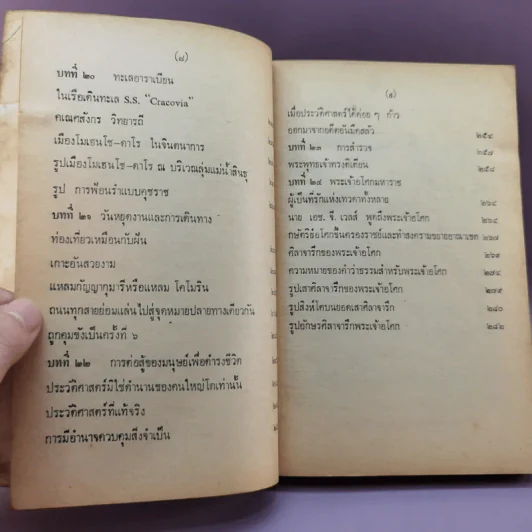 (๘)
บทที่ ๒๐ ทะเลอาราเบียน
ในเรือเดินทะเล S.S. "Cracovia"
คเณศสังกร วิทยารถี
เมืองโมเฮนโช-ดาโร ในจินตนาการ
รูปเมืองโมเฮนโช-ดาโร ณ บริเวณลุ่มแม่น้ำสินธุ
รูป การฟ้อนรำแบบคุชราช
บทที่ ๒๑ วันหยุดงานและการเดินทาง
ท่องเที่ยวเหมือนกับฝัน
เกาะอันสวยงาม
แหลมกัญญากุมารีหรือแหลม โคโมริน
ถนนทุกสายย่อมแล่นไปสู่จุดหมายปลายทางเดียวกัน
ถูกคุมขังเป็นครั้งที่ ๖
บทที่ ๒๒ การต่อสู้ของมนุษย์เพื่อดำรงชีวิต
ประวัติศาสตร์มิใช่ตำนานของคนใหญ่โตเท่านั้น
ประวัติศาสตร์ที่แท้จริง
การมีอำนาจควบคุมสิ่งจำเป็น
(๙)
เมื่อประวัติศาสตร์ได้ค่อย ๆ ก้าว
ออกมาจากอดีตอันมืดสลัว ๒๕๔
บทที่ ๒๓ การสำรวจ ๒๕๗
พระพุทธเจ้าทรงติเตียน ๒๕๘
บทที่ ๒๔ พระเจ้าอโศกมหาราช
ผู้เป็นที่รักแห่งเทวดาทั้งหลาย ๒๖๔
นาย เอช. จี. เวลส์ พูดถึงพระเจ้าอโศก ๒๖๔
กษัตริย์อโศกขึ้นครองราชย์และทำสงครามขยายอาณาเขต ๒๖๗
ศิลาจารึกของพระเจ้าอโศก ๒๖๙
ความหมายของคำว่าธรรมสำหรับพระเจ้าอโศก ๒๗๔
รูปเสาศิลาจารึกของพระเจ้าอโศก ๒๗๙
รูปสิงห์โตบนยอดเสาศิลาจารึก ๒๘๐
รูปอักษรศิลาจารึกพระเจ้าอโศก ๒๘๒